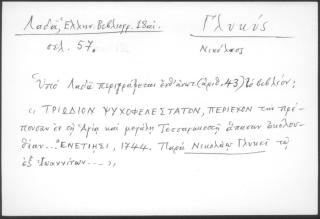 Λαδᾶ, Ἑλλην. Βιβλιογρ. 18αι.
σελ. 57.
Γλυκύς
Νικόλαος
Ὑπὸ Λαδᾶ περιγράφεται ἐνθ' ἀνωτ. (ἀριθ. 43) τὸ βιβλίον:
«ΤΡΙΩΔΙΟΝ ΨΥΧΟΦΕΛΕΣΤΑΤΟΝ, ΠΕΡΙΕΧΟΝ τὴν πρέ-
πουσαν ἐν τῇ Ἁγίᾳ καὶ μεγάλῃ Τεσσαρακοστῇ ἅπασαν ἀκολου-
θίαν... ἘΝΕΤΙΗΣΙ, 1744. Παρὰ Νικολάῳ Γλυκεῖ τῷ
ἐξ Ἰωαννίνων...»